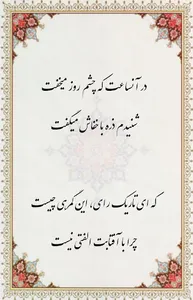 در آنساعت که چشم روز میخفت
شنیدم ذره با خفاش میگفت
که ای تاریک رای، این گمرهی چیست
چرا با آفتابت الفتی نیست